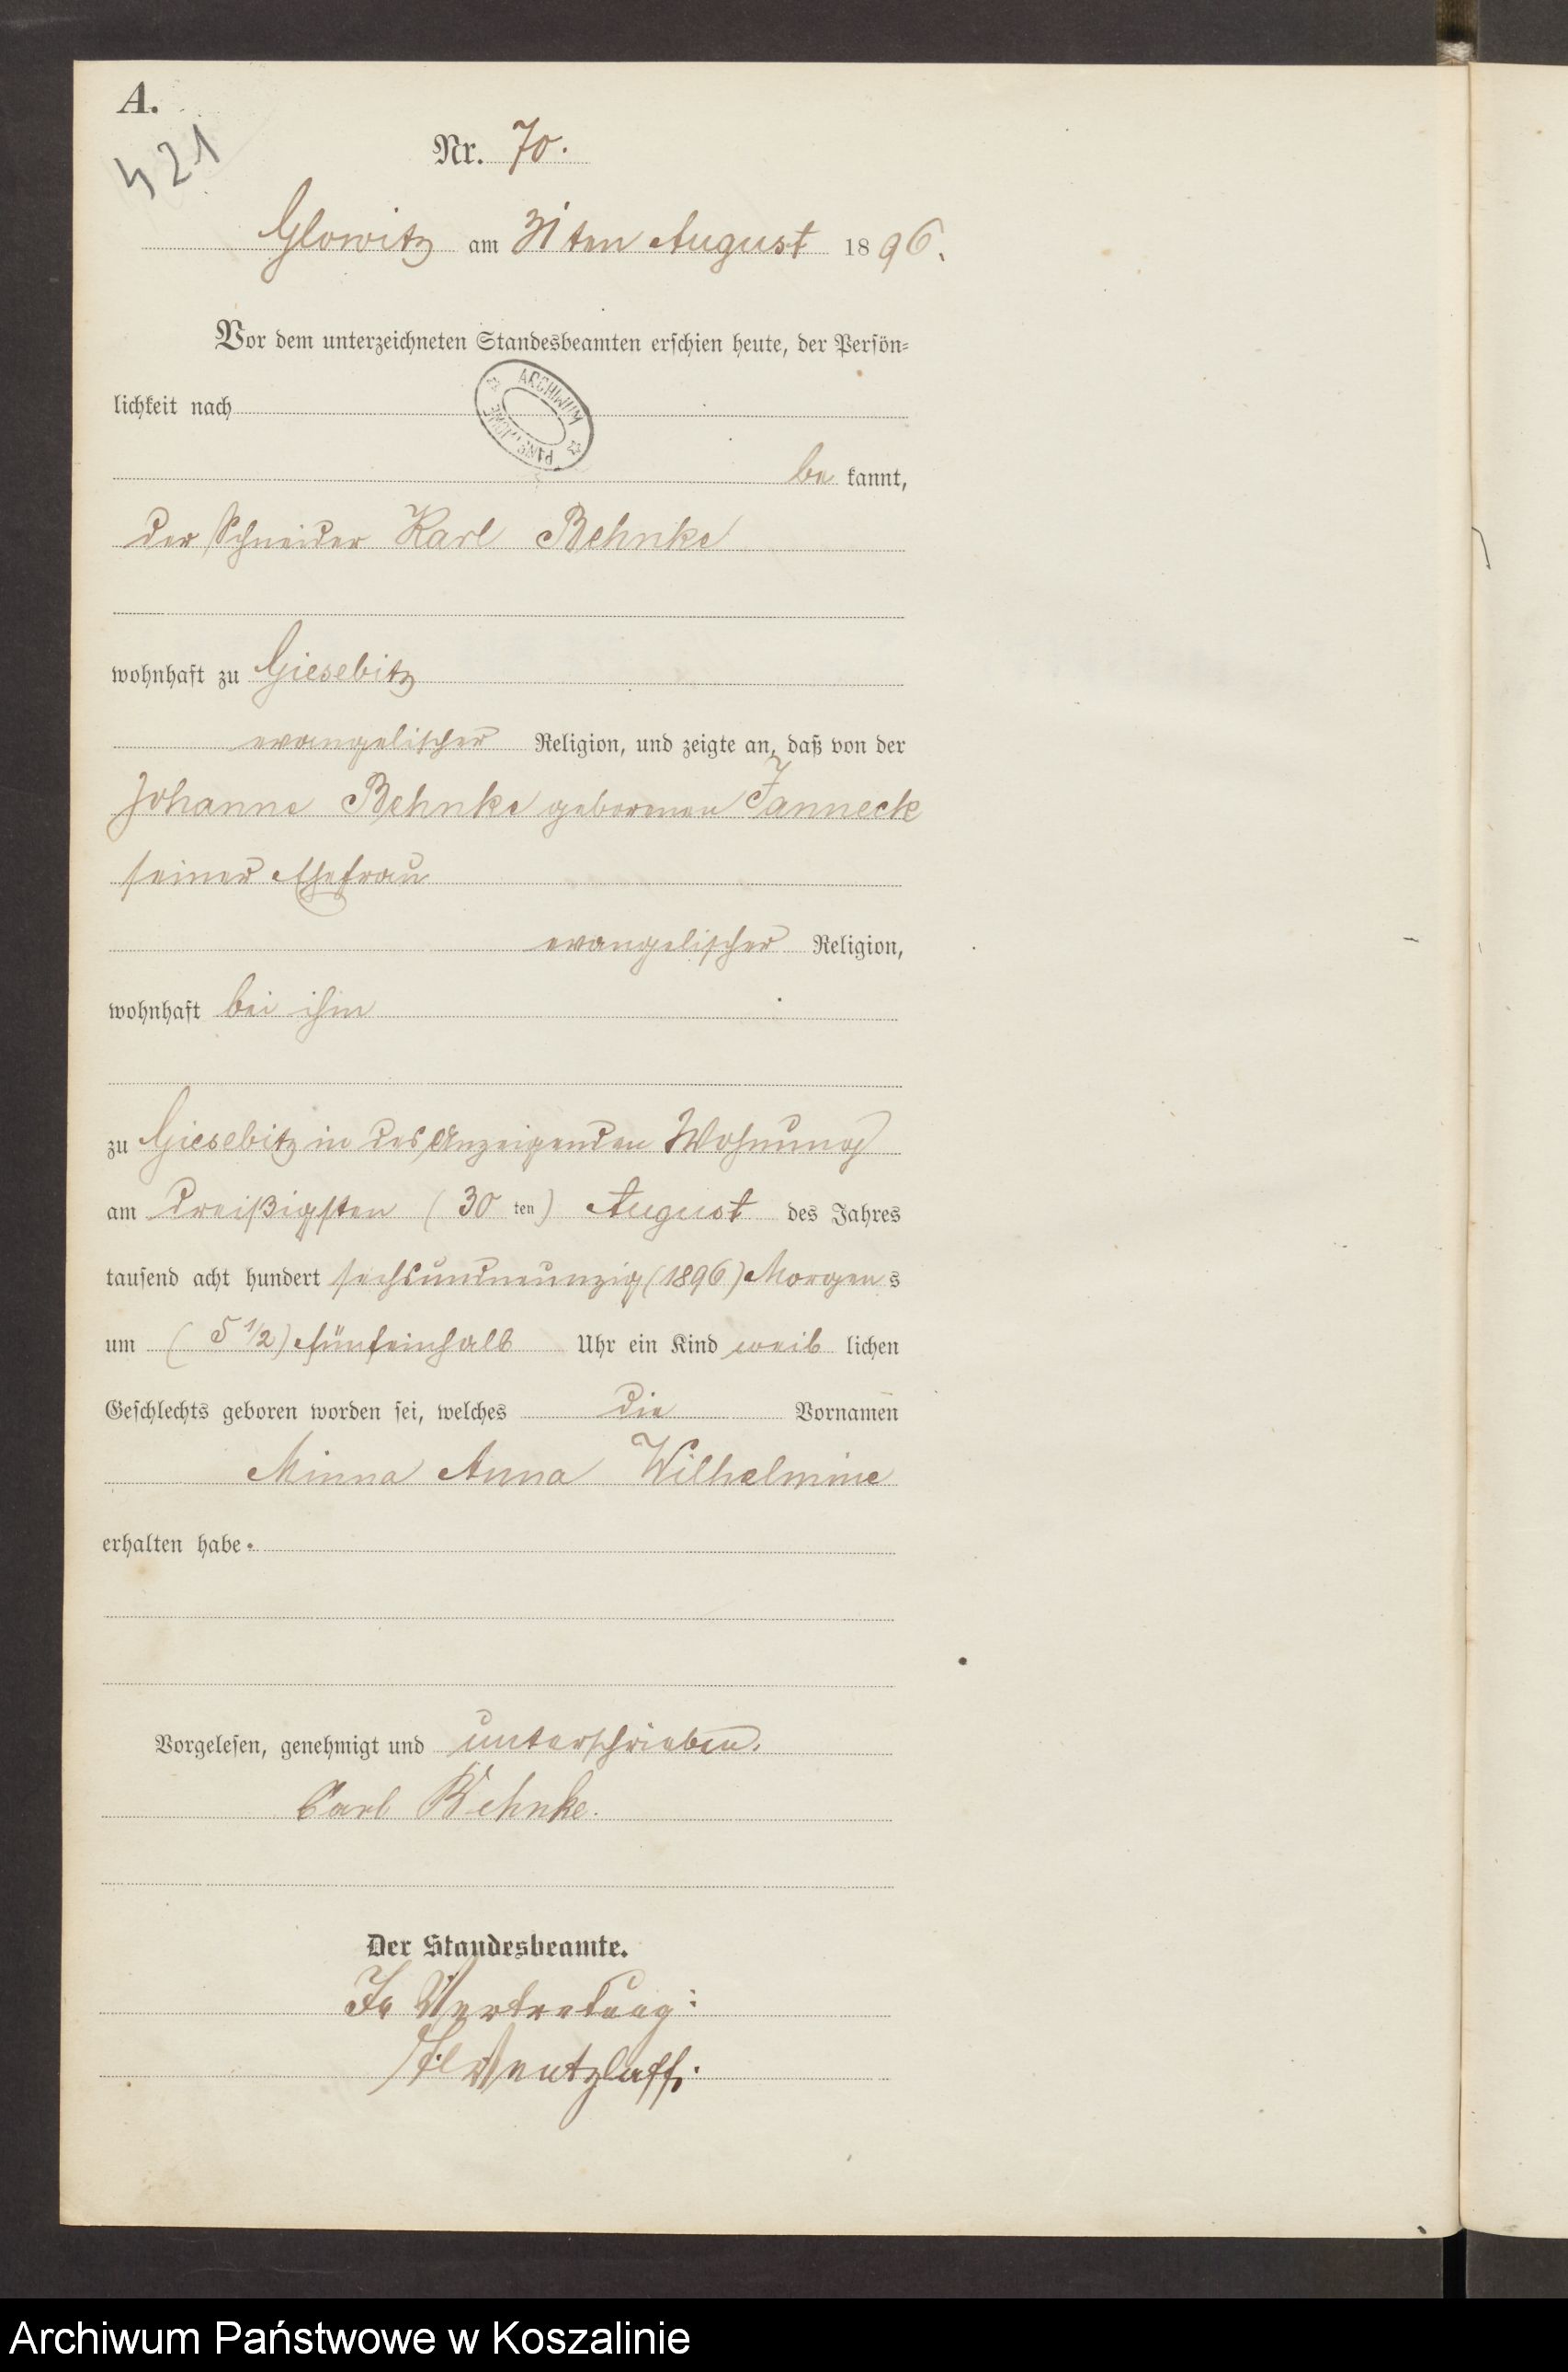 A.
421
Nr. 70.
Glowitz am 31ten August 1896.
Vor dem unterzeichneten Standesbeamten erschien heute, der Persön-
lichkeit nach
ARCHIWUM
be kannt,
der Schneider Karl Behnke
wohnhaft zu Giesebitz
evangelischer Religion, und zeigte an, daß von der
Johanne Behnke geborenen Janneck
seiner Ehefrau
evangelischer Religion,
wohnhaft bei ihm
zu Giesebitz in des Anzeigenden Wohnung
am dreißigsten (30 ten) August des Jahres
tausend acht hundert sechsundneunzig (1896) Morgens
um (5 1/2) fünfeinhalb Uhr ein Kind weib lichen
Geschlechts geboren worden sei, welches die Vornamen
Minna Anna Wilhelmine
erhalten habe.
Vorgelesen, genehmigt und unterschrieben.
Carl Behnke.
Der Standesbeamte.
In Vertretung:
Wentzlaff.
Archiwum Państwowe w Koszalinie